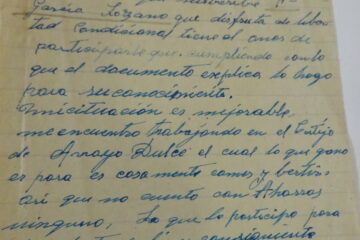 Garcia Lozano que disfruta de liber
tad Condicional tiene el onor de
participarle que cumpliendo con lo
que el documento explica lo hago
para su conosimiento.
Mi situación es mejorable,
me encuentro trabajando en el Cortijo
de Arroyo Dulce el cual lo que gano
es para escasamente comer y bertir
asi que no cuento con Ahorros
ninguno, Lo que le participo para